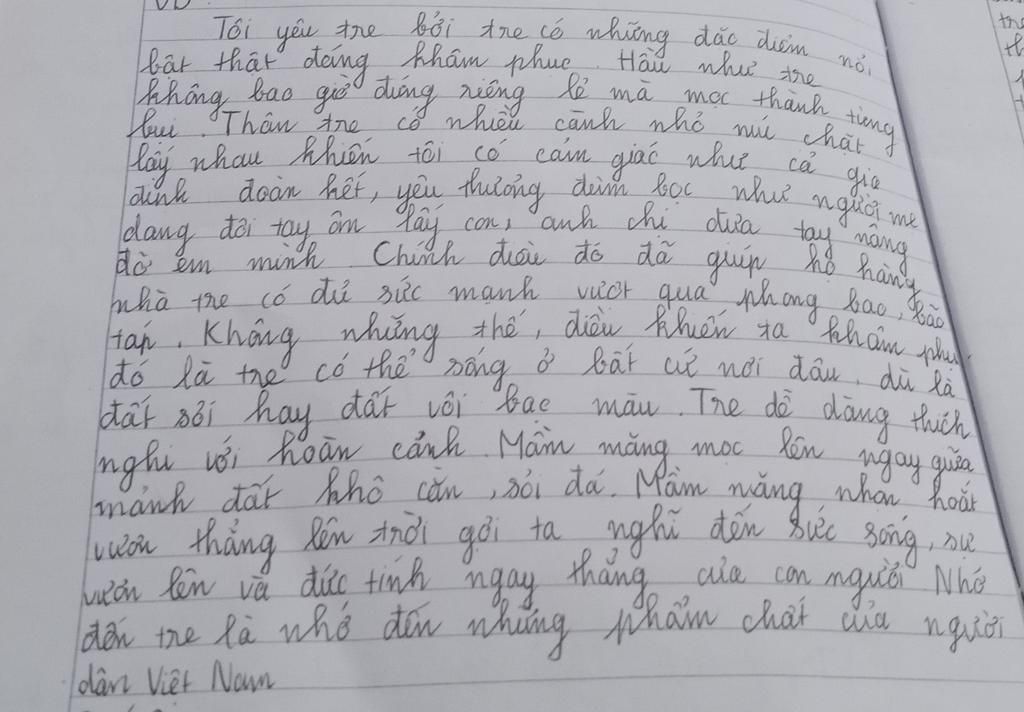 VD
Tôi yêu tre bởi tre có những đăc điểm nổi
bât thật đáng khâm phuc. Hầu như tre
không bao giờ đứng riêng lẻ mà mọc thành từng
bụi. Thân tre có nhiều cành nhỏ níu chặt
lấy nhau khiến tôi có cảm giác như cả gia
đình đoàn kết, yêu thương đùm bọc như người mẹ
dang đôi tay ôm lấy con, anh chị đưa tay nâng
đỡ em mình. Chính điều đó đã giúp họ hàng
nhà tre có đủ sức mạnh vượt qua phong bao, bão
táp. Không những thế, điều khiến ta khâm phục
đó là tre có thể sống ở bất cứ nơi đâu, dù là
đất sỏi hay đất vôi bạc màu. Tre dễ dàng thích
nghi với hoàn cảnh. Mầm măng moc lên ngay giữa
mảnh đất khô cằn, sỏi đá. Mầm măng nhọn hoắt
vươn thẳng lên trời gợi ta nghĩ đến sức sống, sự
vươn lên và đức tính ngay thẳng của con người. Nhớ
đến tre là nhớ đến những phẩm chất của người
dân Việt Nam